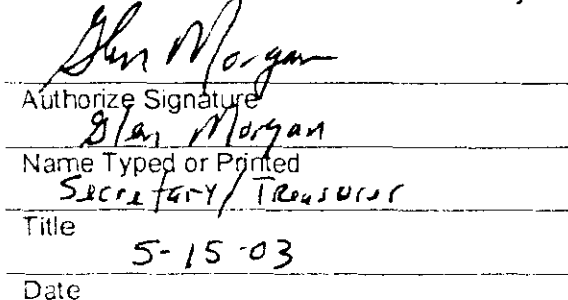 Glen Morgan
Authorize Signature
Glen Morgan
Name Typed or Printed
Secretary/Treasurer
Title
5-15-03
Date